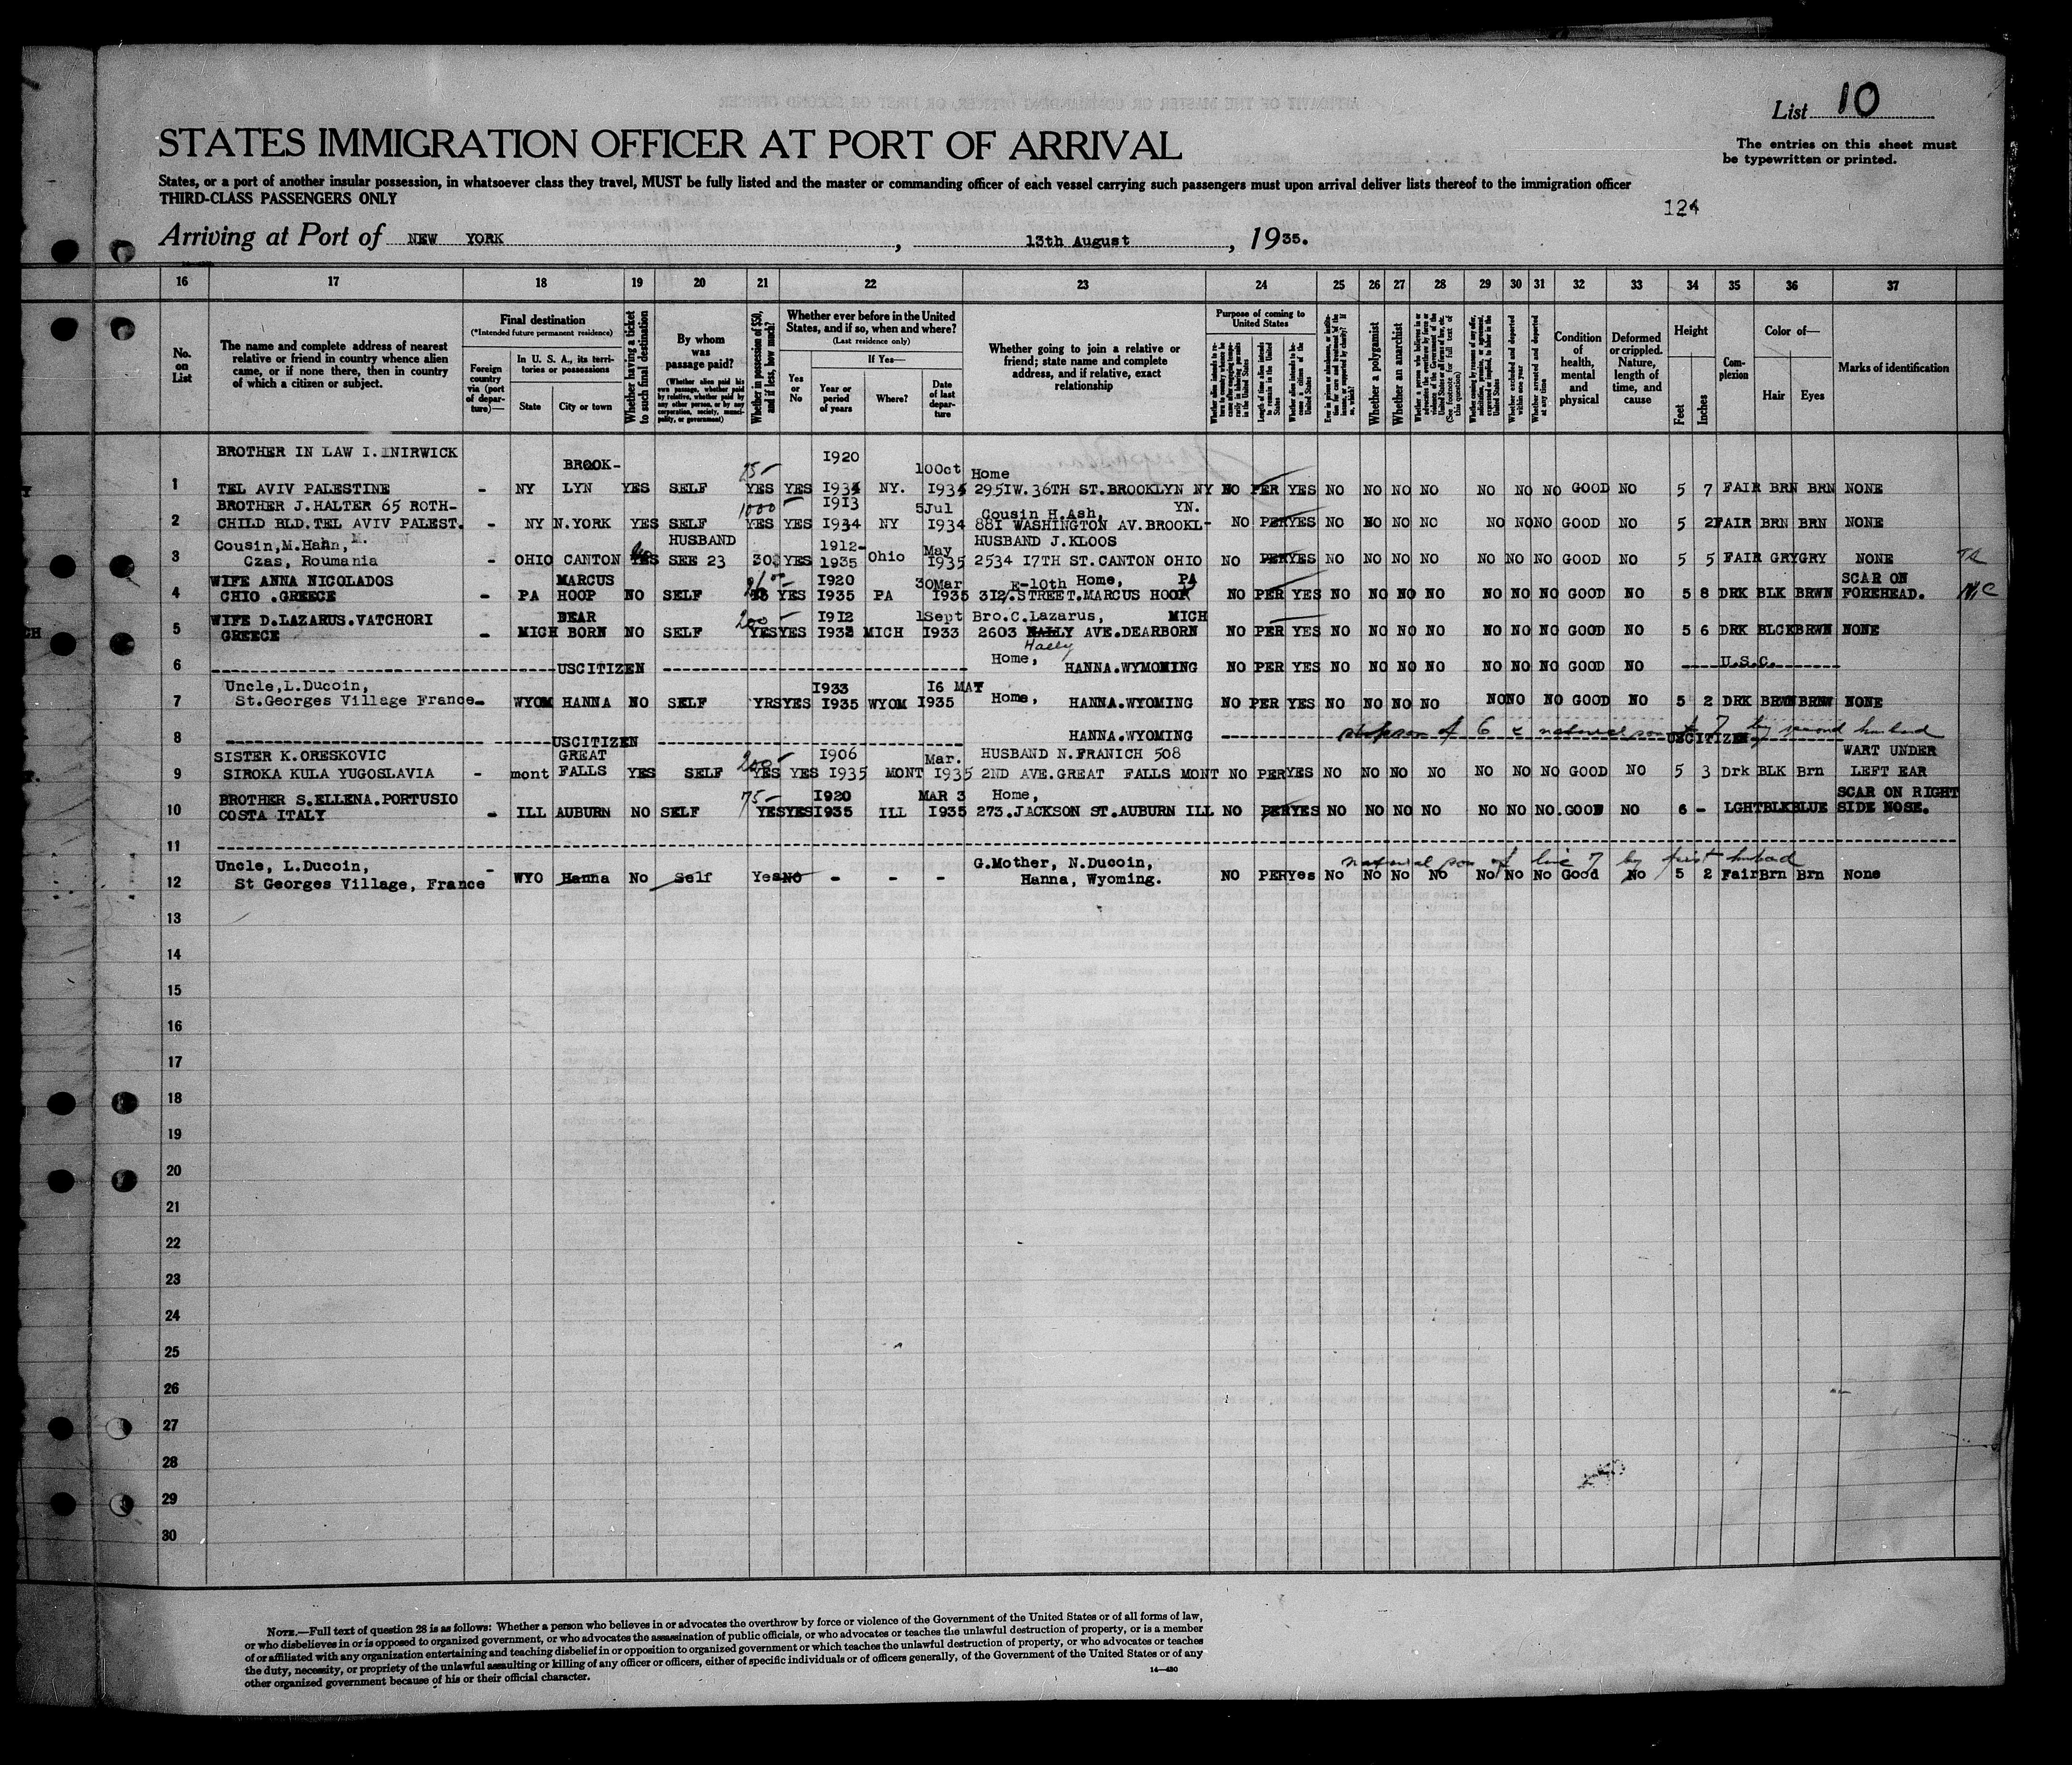 List 10
The entries on this sheet must
be typewritten or printed.
STATES IMMIGRATION OFFICER AT PORT OF ARRIVAL
States, or a port of another insular possession, in whatsoever class they travel, MUST be fully listed and the master or commanding officer of each vessel carrying such passengers must upon arrival deliver lists thereof to the immigration officer
THIRD-CLASS PASSENGERS ONLY
124
Arriving at Port of NEW YORK , 13th August , 1935.
16 17 18 19 20 21 22 23 24 25 26 27 28 29 30 31 32 33 34 35 36 37
No. on List
The name and complete address of nearest
relative or friend in country whence alien
came, or if none there, then in country
of which a citizen or subject.
Final destination
(*Intended future permanent residence)
Foreign country via (port of departure)—
In U. S. A., its territories or possessions
State
City or town
Whether having a ticket to such final destination
By whom was passage paid?
(Whether alien paid his own passage, whether paid by relative, whether paid by any other person, or by any corporation, society, municipality, or government)
Whether in possession of $50, and if less, how much?
Whether ever before in the United
States, and if so, when and where?
(Last residence only)
Yes or No
If Yes—
Year or period of years
Where?
Date of last departure
Whether going to join a relative or
friend; state name and complete
address, and if relative, exact
relationship
Purpose of coming to United States
Length of time alien intends to remain in the United States
Whether alien intends to become a citizen of the United States
Whether a polygamist
Whether an anarchist
(See footnote for full text of this question)
Whether excluded and deported within one year
Whether arrested and deported at any time
Condition of health, mental and physical
Deformed or crippled. Nature, length of time, and cause
Height
Feet
Inches
Complexion
Color of—
Hair
Eyes
Marks of identification
BROTHER IN LAW I. NIRWICK BROOK- 75- I920 10Oct Home
1 TEL AVIV PALESTINE - NY LYN YES SELF YES YES I934 NY. I934 295IW.36TH ST.BROOKLYN NY NO PER YES NO NO NO NO NO NO NO GOOD NO 5 7 FAIR BRN BRN NONE
BROTHER J.HALTER 65 ROTH- 1000- I913 5Jul Cousin H.Ash, YN.
2 CHILD BLD.TEL AVIV PALEST. - NY N.YORK YES SELF YES YES I934 NY I934 88I WASHINGTON AV.BROOKL- NO PER YES NO NO NO NO NO NO NO GOOD NO 5 2 FAIR BRN BRN NONE
Cousin,M.Hahn, HUSBAND 1912- May HUSBAND J.KLOOS
3 Czas, Roumania - OHIO CANTON YES SEE 23 30 YES 1935 Ohio 1935 2534 I7TH ST.CANTON OHIO NO PER YES NO NO NO NO NO NO NO GOOD NO 5 5 FAIR GRY GRY NONE
WIFE ANNA NICOLADOS MARCUS I920 30Mar E-10th Home, PA SCAR ON
4 CHIO .GREECE - PA HOOP NO SELF YES I935 PA I935 312.STREET.MARCUS HOOK NO PER YES NO NO NO NO NO NO NO GOOD NO 5 8 DRK BLK BRWN FOREHEAD.
WIFE D.LAZARUS.VATCHORI DEAR 200- I9I2 1Sept Bro.C.Lazarus, MICH
5 GREECE - MICH BORN NO SELF YES YES I933 MICH I933 2603 NALLY AVE.DEARBORN NO PER YES NO NO NO NO NO NO NO GOOD NO 5 6 DRK BLCK BRWN NONE
Hally
6 USCITIZEN Home, HANNA.WYMOMING NO PER YES NO NO NO NO NO NO NO GOOD NO U.S.C.
Uncle,L.Ducoin, I933 I6 MAT
7 St.Georges Village France - WYOM HANNA NO SELF YRS YES I935 WYOM I935 Home, HANNA.WYOMING NO PER YES NO NO NO NO NO NO NO GOOD NO 5 2 DRK BRWN BRNW NONE
8 USCITIZEN HANNA.WYOMING stepson of 6 & natural son of 7 by second husband USCITIZEN
SISTER K.ORESKOVIC GREAT 200- I906 Mar. HUSBAND N.FRANICH 508 WART UNDER
9 SIROKA KULA YUGOSLAVIA - mont FALLS YES SELF YES YES I935 MONT I935 2ND AVE.GREAT FALLS MONT NO PER YES NO NO NO NO NO NO NO GOOD NO 5 3 Drk BLK Brn LEFT EAR
BROTHER S.ELLENA.PORTUSIO 75- I920 MAR 3 Home, SCAR ON RIGHT
10 COSTA ITALY - ILL AUBURN NO SELF YES YES I935 ILL I935 273.JACKSON ST.AUBURN ILL NO PER YES NO NO NO NO NO NO NO. GOOD NO 6 - LGHT BLK BLUE SIDE NOSE.
11
Uncle, L.Ducoin, - G.Mother, N.Ducoin, natural son of line 7 by first husband
12 St Georges Village, France WYO Hanna No Self Yes NO - - - Hanna, Wyoming. NO PER Yes No No No No No No No Good No 5 2 Fair Brn Brn None
13
14
15
16
17
18
19
20
21
22
23
24
25
26
27
28
29
30
NOTE.—Full text of question 28 is as follows: Whether a person who believes in or advocates the overthrow by force or violence of the Government of the United States or of all forms of law,
or who disbelieves in or is opposed to organized government, or who advocates the assassination of public officials, or who advocates or teaches the unlawful destruction of property, or is a member
of or affiliated with any organization entertaining and teaching disbelief in or opposition to organized government or which teaches the unlawful destruction of property, or who advocates or teaches
the duty, necessity, or propriety of the unlawful assaulting or killing of any officer or officers, either of specific individuals or of officers generally, of the Government of the United States or of any
other organized government because of his or their official character.
14—430